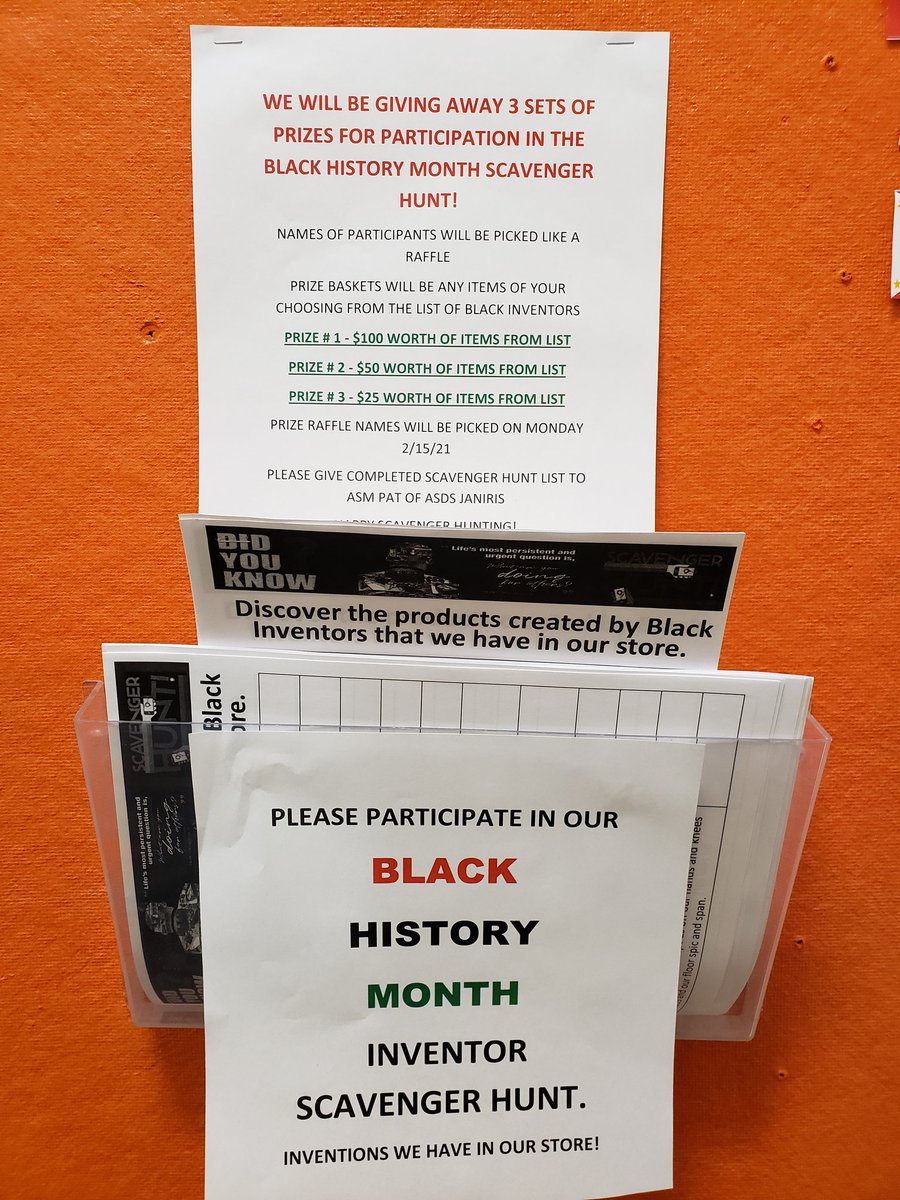 WE WILL BE GIVING AWAY 3 SETS OF
PRIZES FOR PARTICIPATION IN THE
BLACK HISTORY MONTH SCAVENGER
HUNT!
NAMES OF PARTICIPANTS WILL BE PICKED LIKE A
RAFFLE
PRIZE BASKETS WILL BE ANY ITEMS OF YOUR
CHOOSING FROM THE LIST OF BLACK INVENTORS
PRIZE # 1 - $100 WORTH OF ITEMS FROM LIST
PRIZE # 2 - $50 WORTH OF ITEMS FROM LIST
PRIZE # 3 - $25 WORTH OF ITEMS FROM LIST
PRIZE RAFFLE NAMES WILL BE PICKED ON MONDAY
2/15/21
PLEASE GIVE COMPLETED SCAVENGER HUNT LIST TO
ASM PAT OF ASDS JANIRIS
HAPPY SCAVENGER HUNTING!
DID
YOU
KNOW
Life's most persistent and
urgent question is,
What are you
doing
for others?
SCAVENGER
Discover the products created by Black
Inventors that we have in our store.
SCAVENGER
HUNT!
Life's most persistent and
urgent question is,
What are you
doing
for others?
Black
ore.
our hands and knees
our floor spic and span.
PLEASE PARTICIPATE IN OUR
BLACK
HISTORY
MONTH
INVENTOR
SCAVENGER HUNT.
INVENTIONS WE HAVE IN OUR STORE!